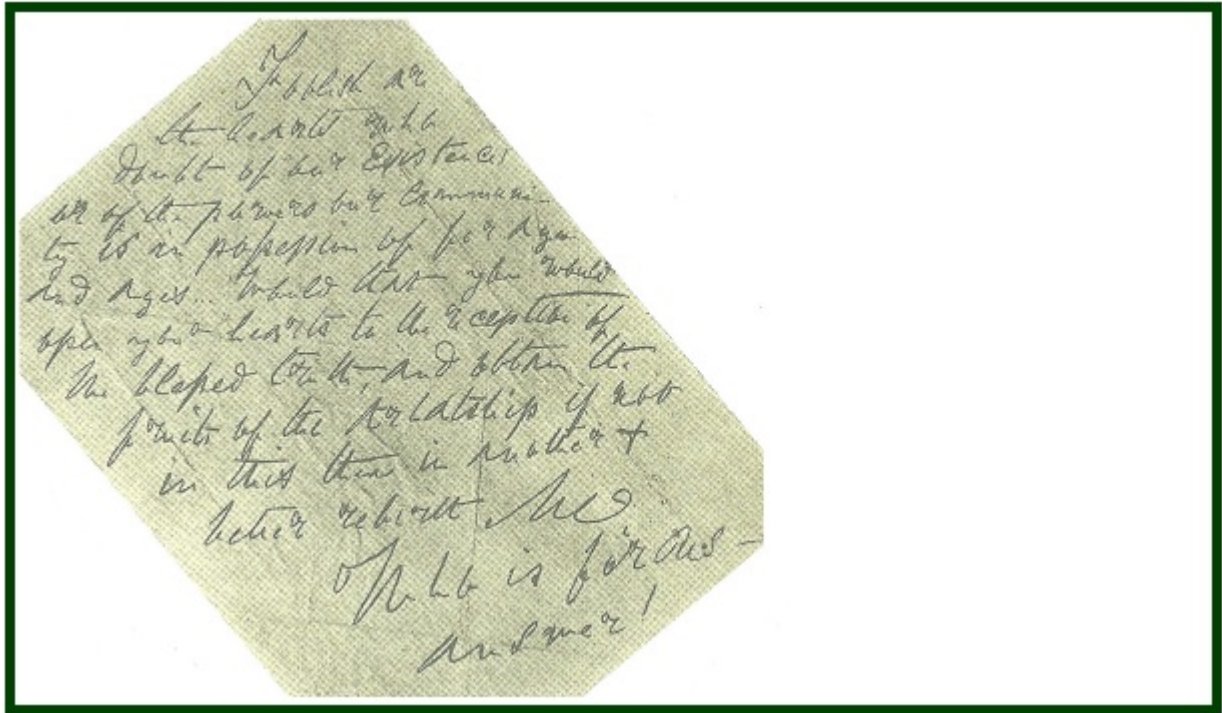 Foolish are
the hearts who
doubt of our existence!
or of the powers our communi-
ty is in possession of for ages
and ages. Would that you would
open your hearts to the reception of
the blessed truth, and obtain the
fruits of the Arhatship if not
in this then in another +
better rebirth.
Who is for us —
answer!